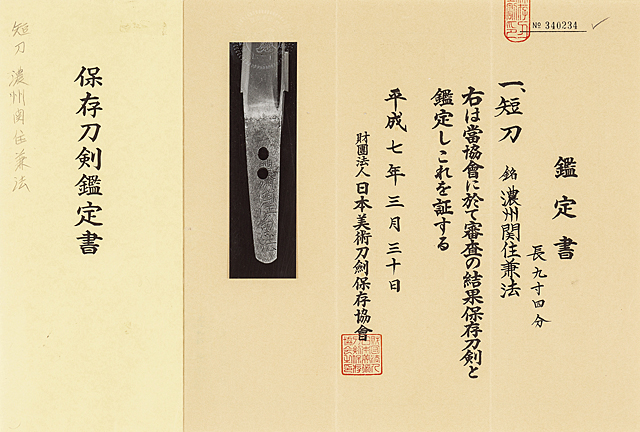 № 340234
鑑定書
一、短刀 銘 濃州関住兼法
長九寸四分
右は當協會に於て審査の結果保存刀剣と
鑑定しこれを証する
平成七年三月三十日
財團法人 日本美術刀剣保存協會
保存刀剣鑑定書
短刀 濃州関住兼法